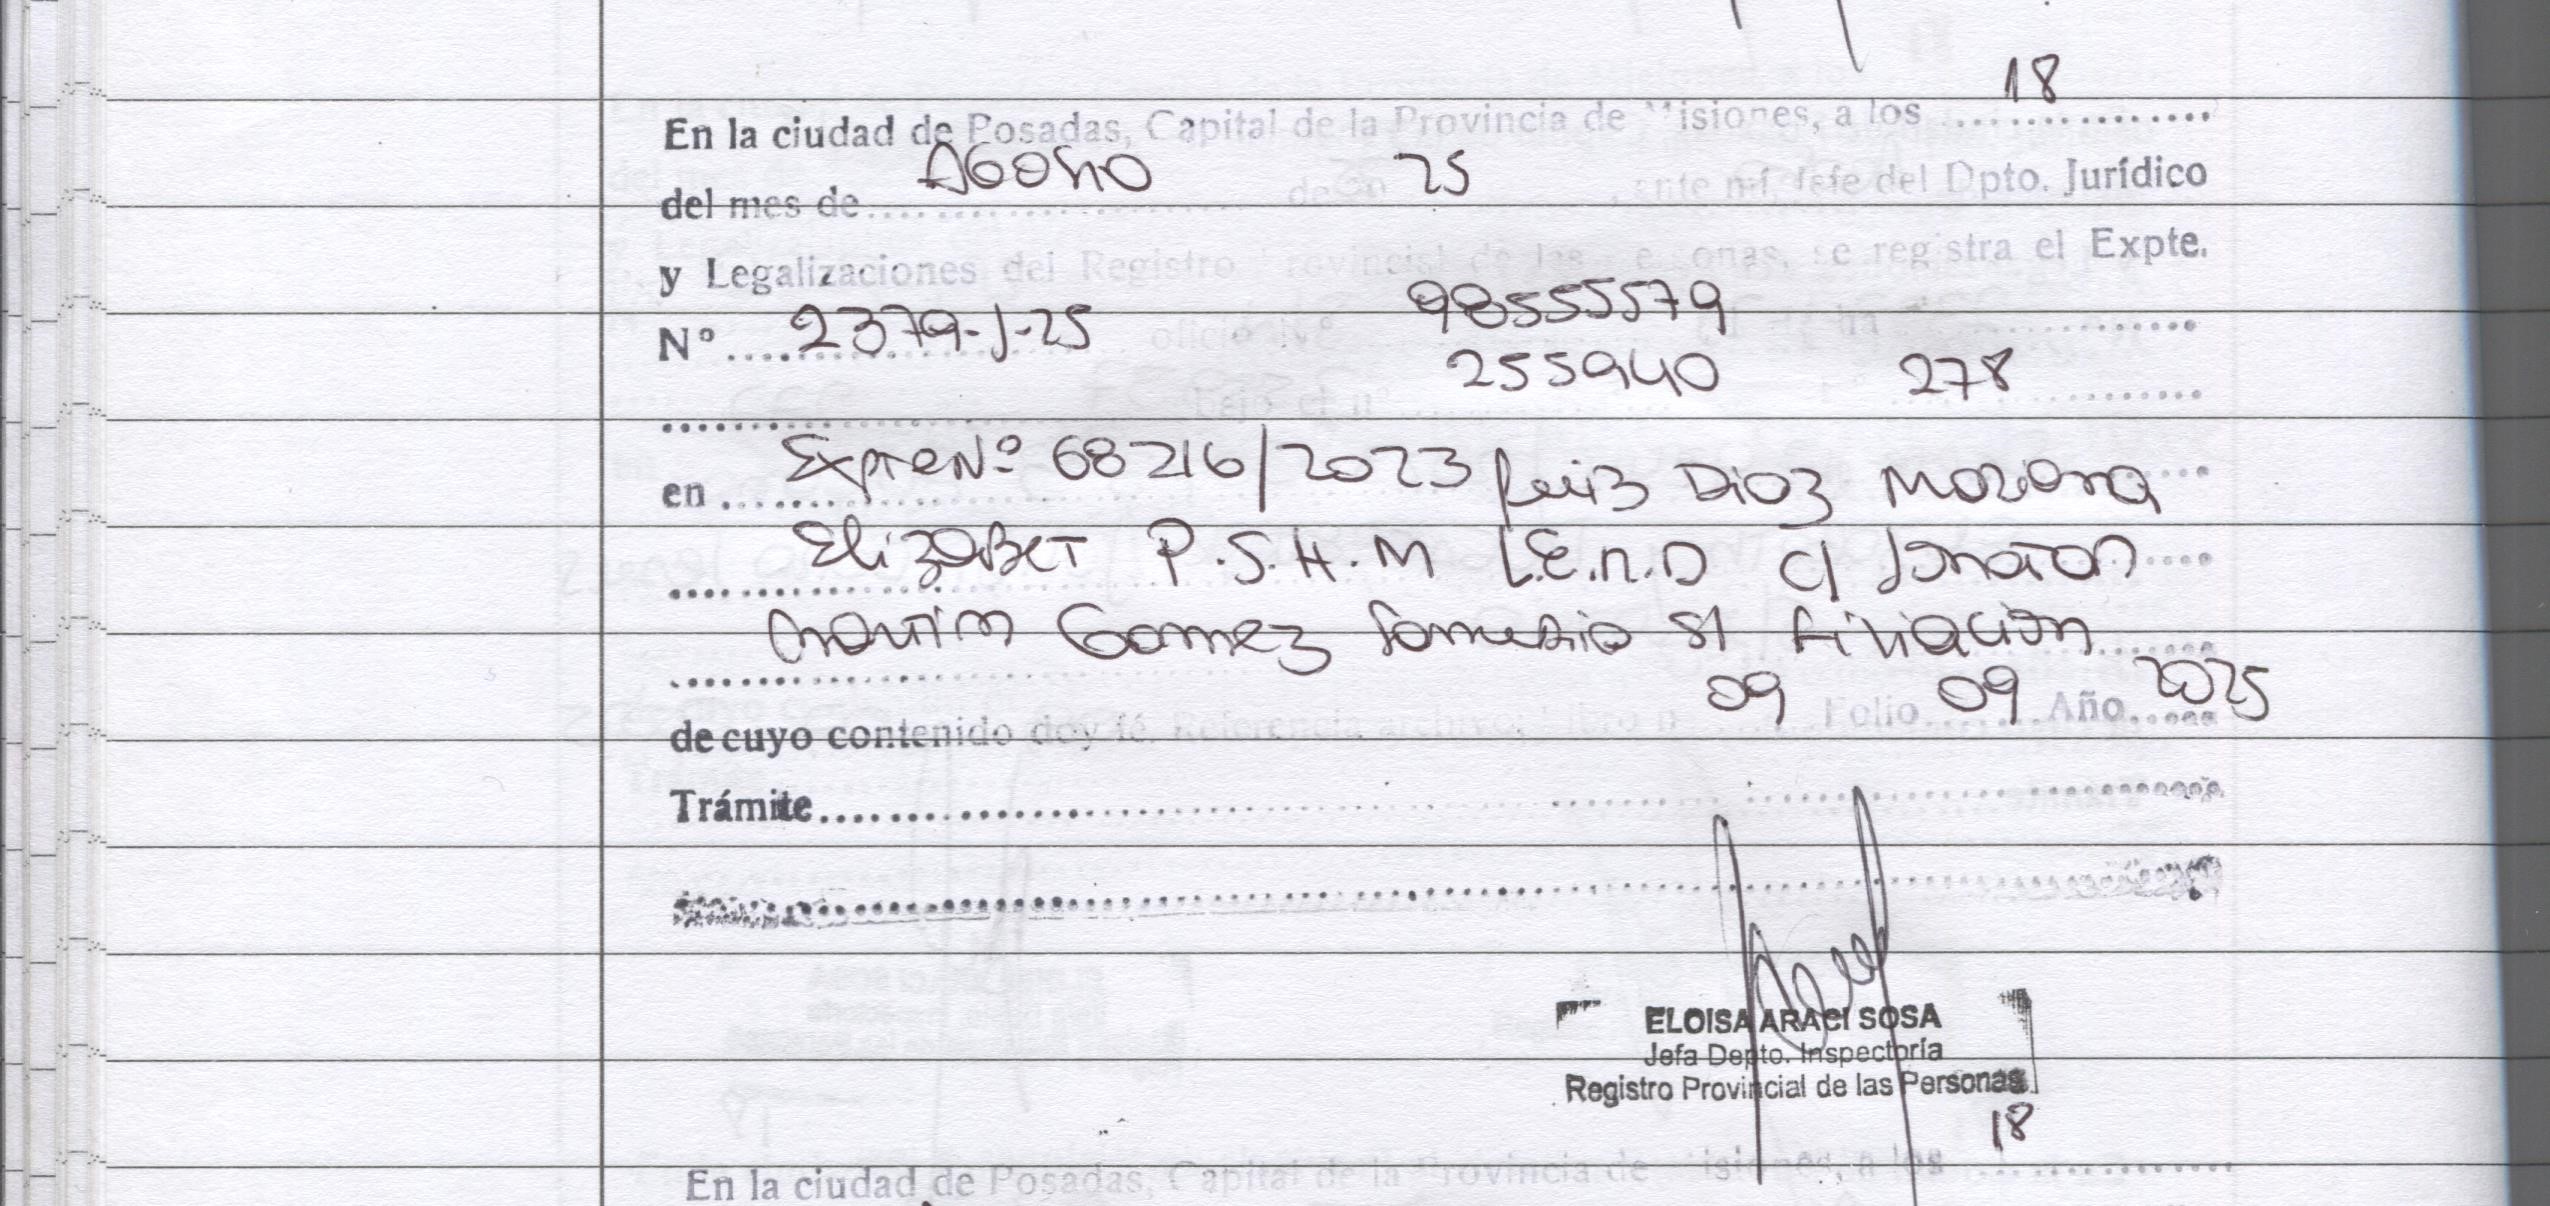 18
En la ciudad de Posadas, Capital de la Provincia de Misiones, a los
del mes de Agosto de 25, ante mí, Jefe del Dpto. Jurídico
y Legalizaciones del Registro Provincial de las Personas, se registra el Expte.
Nº 2379-J-25 oficio Nº 98555579
bajo el nº 255940 278
en Expte Nº 68216/2023 Ruiz Diaz Mariana
Elizabet P.S.H.M L.E.N.D c/ Jonatan
Gomez s/ filiación
de cuyo contenido doy fé. Referencia archivo: Libro n 09 Folio 09 Año 2025
Trámite
ELOISA ARACI SOSA
Jefa Depto. Inspectoría
Registro Provincial de las Personas
18
En la ciudad de Posadas, Capital de la Provincia de Misiones, a los